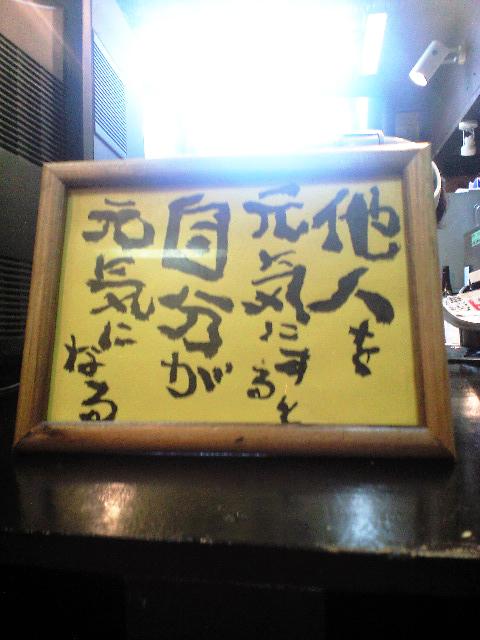 他人を
元気にすると
自分が
元気になる